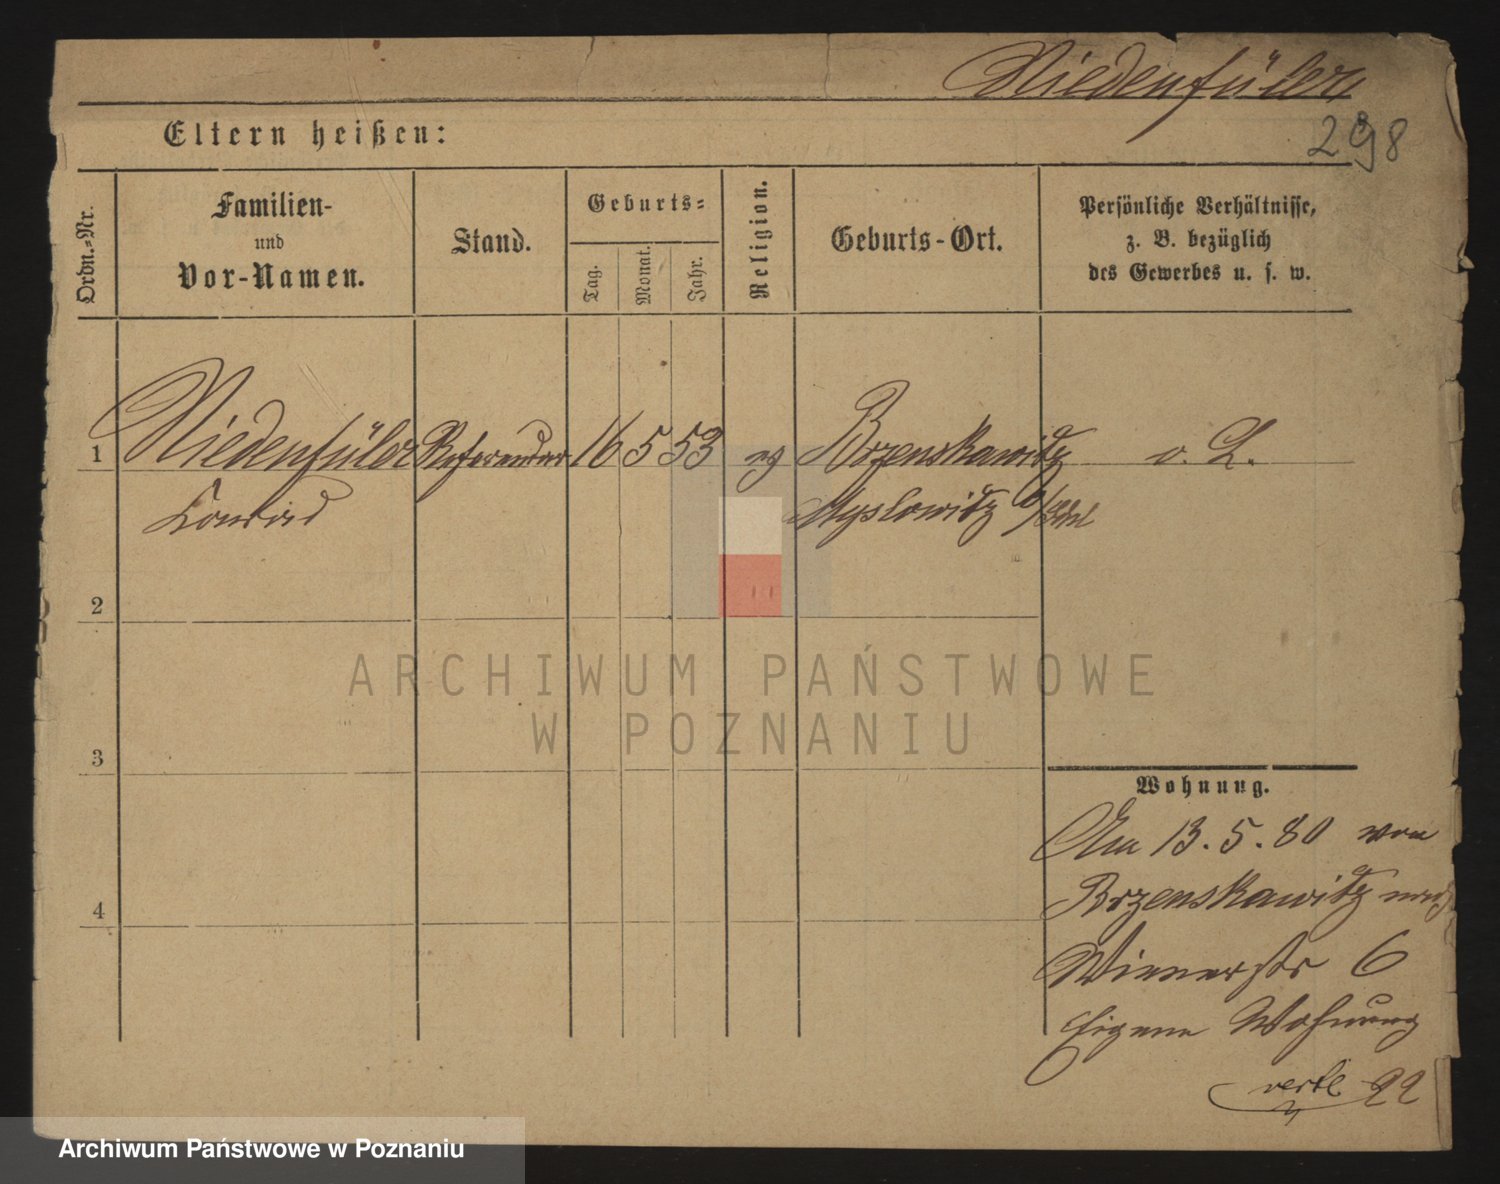 Niedenfüler
298
Eltern heißen:
Ordn.-Nr.
Familien-
und
Vor-Namen.
Stand.
Geburts-
Tag.
Monat.
Jahr.
Religion.
Geburts-Ort.
Persönliche Verhältnisse,
z. B. bezüglich
des Gewerbes u. s. w.
1 Niedenfüler Referendar 16 5 53 ev Brzenskawitz o. L.
Konrad Myslowitz
2
3
4
Wohnung.
Am 13. 5. 80 von
Brzenskawitz nach
Wienerstr 6
Eigene Wohnung
22
ARCHIWUM PAŃSTWOWE
W POZNANIU
Archiwum Państwowe w Poznaniu